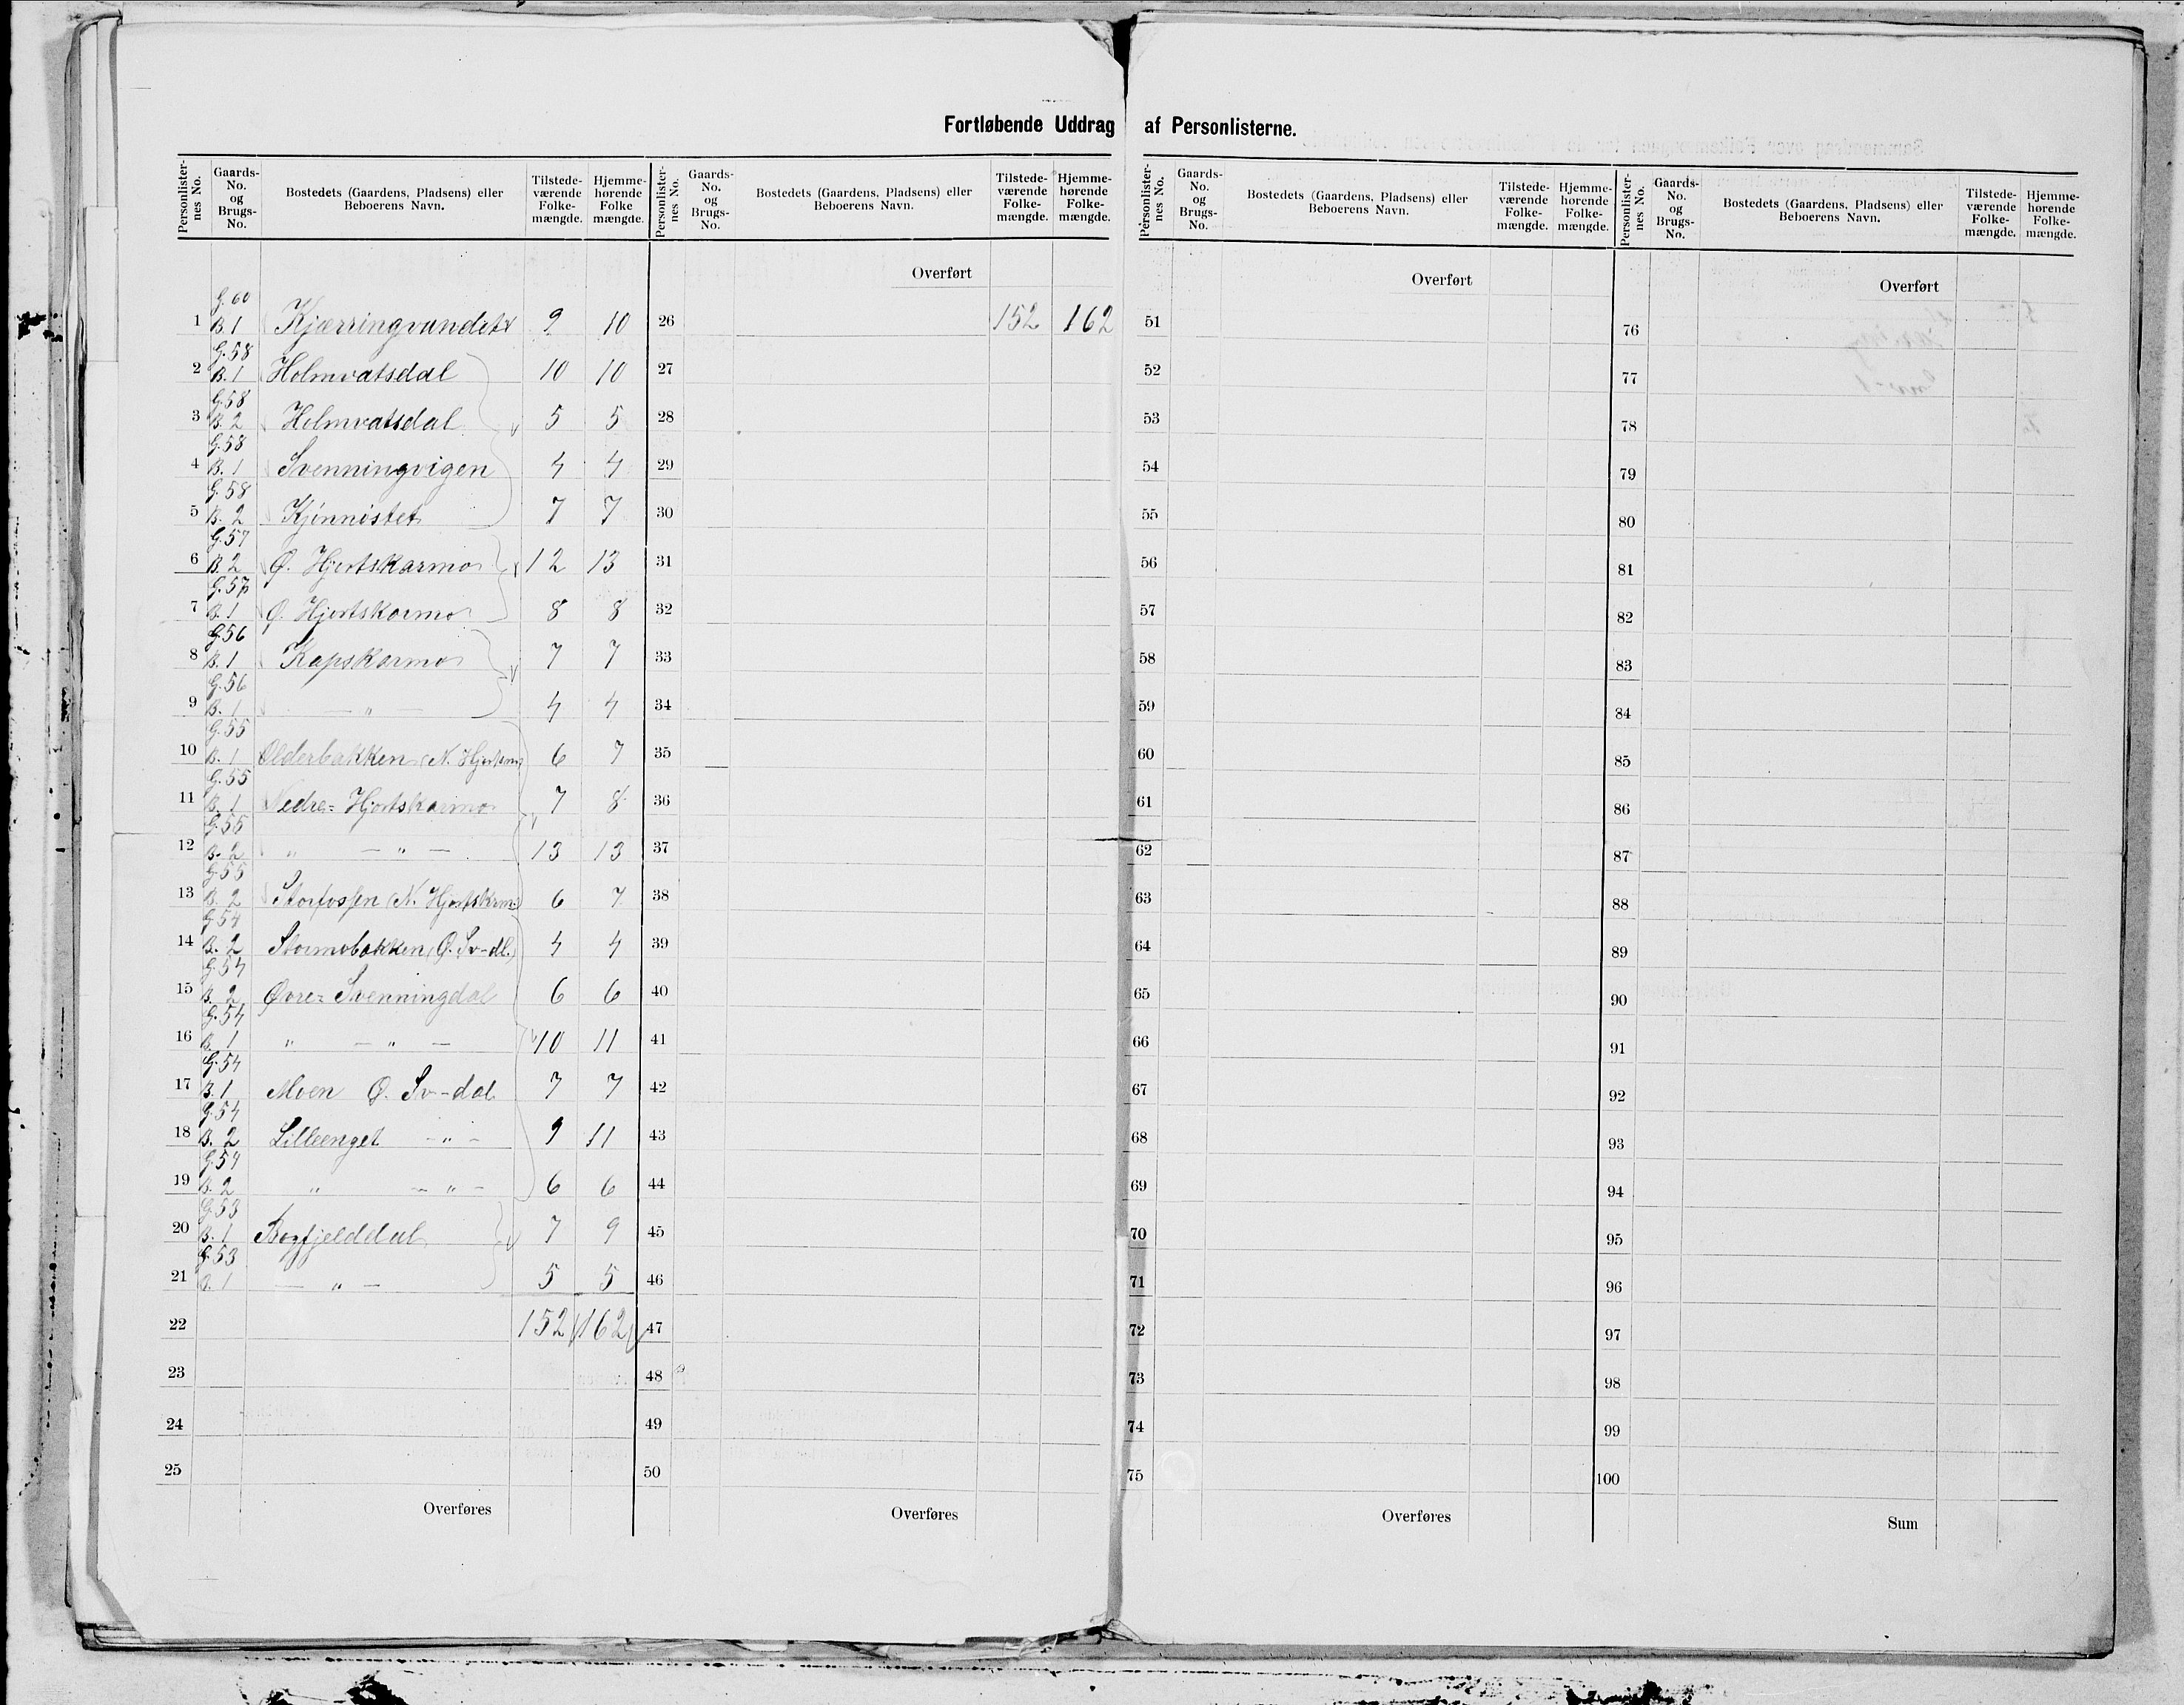 Fortløbende Uddrag af Personlisterne.
Personlisternes No. Gaards-No. og Brugs-No. Bostedets (Gaardens, Pladsens) eller Beboerens Navn. Tilstedeværende Folkemængde. Hjemmehørende Folkemængde.
Personlisternes No. Gaards-No. og Brugs-No. Bostedets (Gaardens, Pladsens) eller Beboerens Navn. Tilstedeværende Folkemængde. Hjemmehørende Folkemængde.
Personlisternes No. Gaards-No. og Brugs-No. Bostedets (Gaardens, Pladsens) eller Beboerens Navn. Tilstedeværende Folkemængde. Hjemmehørende Folkemængde.
Personlisternes No. Gaards-No. og Brugs-No. Bostedets (Gaardens, Pladsens) eller Beboerens Navn. Tilstedeværende Folkemængde. Hjemmehørende Folkemængde.
1 G. 60 B. 1 Kjærringvandet 9 10
2 G. 58 B. 1 Holmvatsdal 10 10
3 G. 58 B. 2 Holmvatsdal 5 5
4 G. 58 B. 1 Svenningvigen 4 4
5 G. 58 B. 2 Kjønnistet 7 7
6 G. 57 B. 2 Ø. Hjortskarmo 12 13
7 G. 57 B. 1 Ø. Hjortskarmo 8 8
8 G. 56 B. 1 Kapskarmo 7 7
9 G. 56 B. 1 — " — 4 4
10 G. 55 B. 1 Olderbakken (N. Hjortkrm) 6 7
11 G. 55 B. 1 Nedre= Hjortskarmo 7 8
12 G. 55 B. 2 " — " — 13 13
13 G. 55 B. 2 Storfossen (N. Hjortskrm) 6 7
14 G. 54 B. 2 Stormobakken (Ø. Sv-dl.) 4 4
15 G. 54 B. 2 Øvre= Svenningdal 6 6
16 G. 54 B. 1 " — " — 10 11
17 G. 54 B. 1 Moen Ø. Sv-dal 7 7
18 G. 54 B. 2 Lilleenget — " — 9 11
19 G. 54 B. 2 " — " — 6 6
20 G. 53 B. 1 Bogfjelddal 7 9
21 G. 53 B. 1 — " — 5 5
22 152 162
23
24
25
Overføres
Overført
26 152 162
27
28
29
30
31
32
33
34
35
36
37
38
39
40
41
42
43
44
45
46
47
48
49
50
Overføres
Overført
51
52
53
54
55
56
57
58
59
60
61
62
63
64
65
66
67
68
69
70
71
72
73
74
75
Overføres
Overført
76
77
78
79
80
81
82
83
84
85
86
87
88
89
90
91
92
93
94
95
96
97
98
99
100
Sum